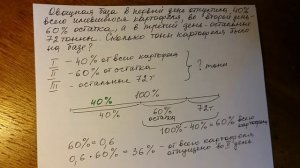 Овощная база в первый день отпустила 40%
всего имевшегося картофеля, во второй день -
60% остатка, а в третий день - остальные
72 тонны. Сколько тонн картофеля было
на базе?
I - 40% от всего картофеля
II - 60% от остатка
III - остальные 72т
? тонн
40%
100%
40%
60%
остатка
72т.
100%-40%=60% всего
картофеля
60% = 0,6
0,6 · 60% = 36% - от всего картофеля
отпущено во II день